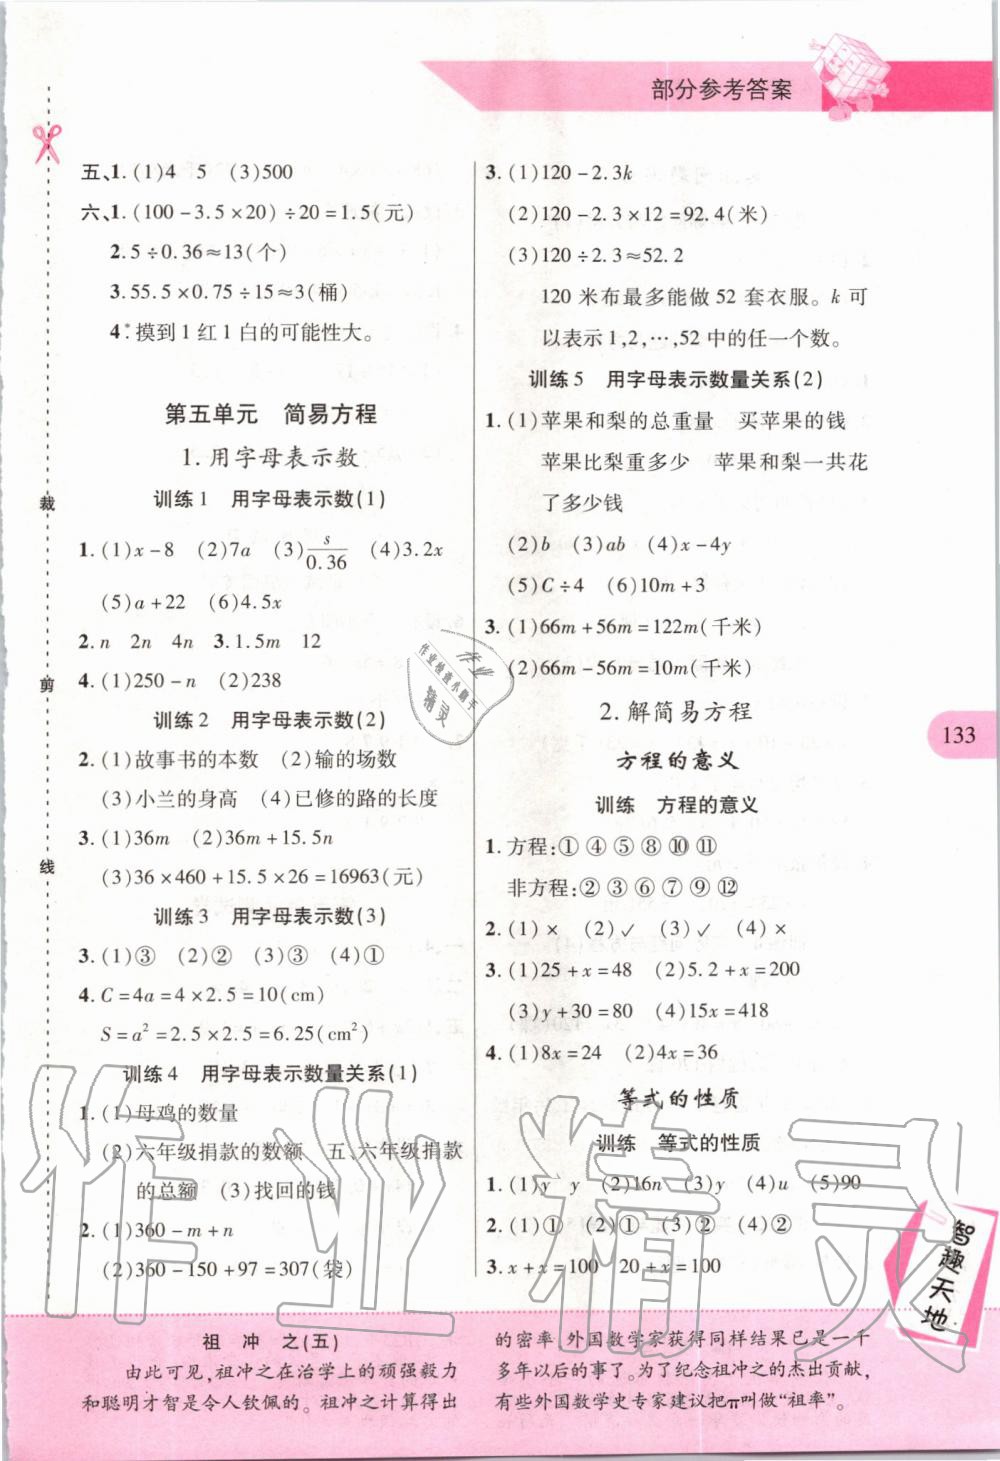 部分参考答案
五、1.(1)4 5 (3)500
六、1.(100-3.5×20)÷20=1.5(元)
2.5÷0.36≈13(个)
3.55.5×0.75÷15≈3(桶)
4*.摸到1红1白的可能性大。
第五单元 简易方程
1.用字母表示数
训练1 用字母表示数(1)
1.(1)x-8 (2)7a (3)s/0.36 (4)3.2x
(5)a+22 (6)4.5x
2.n 2n 4n 3.1.5m 12
4.(1)250-n (2)238
训练2 用字母表示数(2)
2.(1)故事书的本数 (2)输的场数
(3)小兰的身高 (4)已修的路的长度
3.(1)36m (2)36m+15.5n
(3)36×460+15.5×26=16963(元)
训练3 用字母表示数(3)
3.(1)③ (2)② (3)③ (4)①
4.C=4a=4×2.5=10(cm)
S=a²=2.5×2.5=6.25(cm²)
训练4 用字母表示数量关系(1)
1.(1)母鸡的数量
(2)六年级捐款的数额 五、六年级捐款
的总额 (3)找回的钱
2.(1)360-m+n
(2)360-150+97=307(袋)
3.(1)120-2.3k
(2)120-2.3×12=92.4(米)
(3)120÷2.3≈52.2
120米布最多能做52套衣服。k可
以表示1,2,…,52中的任一个数。
训练5 用字母表示数量关系(2)
1.(1)苹果和梨的总重量 买苹果的钱
苹果比梨重多少 苹果和梨一共花
了多少钱
(2)b (3)ab (4)x-4y
(5)C÷4 (6)10m+3
3.(1)66m+56m=122m(千米)
(2)66m-56m=10m(千米)
2.解简易方程
方程的意义
训练 方程的意义
1.方程:①④⑤⑧⑩⑪
非方程:②③⑥⑦⑨⑫
2.(1)× (2)✓ (3)✓ (4)×
3.(1)25+x=48 (2)5.2+x=200
(3)y+30=80 (4)15x=418
4.(1)8x=24 (2)4x=36
等式的性质
训练 等式的性质
1.(1)y y (2)16n (3)y (4)u (5)90
2.(1)① (2)① (3)② (4)②
3.x+x=100 20+x=100
133
裁
剪
线
作业
作业快速小助手
精灵
作业精灵
智趣天地
祖冲之(五)
由此可见,祖冲之在治学上的顽强毅力
和聪明才智是令人钦佩的。祖冲之计算得出
的密率,外国数学家获得同样结果已是一千
多年以后的事了。为了纪念祖冲之的杰出贡献,
有些外国数学史专家建议把π叫做“祖率”。